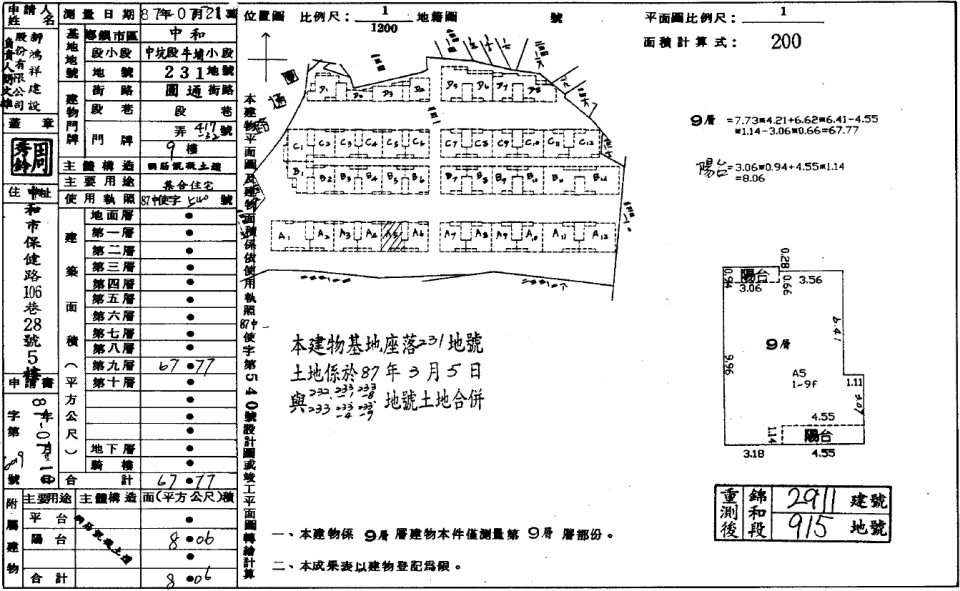 申請人姓名
新鴻祥建設
股份有限公司
蓋章
住址
中和市保健路106巷28號5樓
申請書
字第
號
測量日期 87年07月21日
基地地號
鄉鎮市區 中和
段小段 中坑段牛埔小段
地號 231地號
建物門牌
街路 圓通街路
段巷 段 巷
門牌 弄 417號
9樓
主體構造 鋼筋混凝土造
主要用途 集合住宅
使用執照 87中使字540號
建築面積(平方公尺)
地面層
第一層
第二層
第三層
第四層
第五層
第六層
第七層
第八層
第九層 67.77
第十層
地下層
騎樓
合計 67.77
附屬建物
主要用途 主體構造 面(平方公尺)積
平台
鋼筋混凝土造
陽台 8.06
合計 8.06
本建物平面圖及建物面積係依使用執照87中使字第540號設計圖或竣工平面圖轉繪計算
位置圖 比例尺: 1/1200 地籍圖 號
圓通路
D1 D2 D3 D5 D6 D7 D8
C1 C2 C3 C5 C6 C7 C8 C9 C10 C11 C12
B1 B2 B3 B5 B6 B7 B8 B9 B10 B11 B12
A1 A2 A3 A4 A5 A6 A7 A8 A9 A10 A11 A12
本建物基地座落231地號
土地係於87年3月5日
與232、233-7、233-8
233、233-4、233-9 地號土地合併
一、本建物係 9層 層建物本件僅測量第 9層 層部份。
二、本成果表以建物登記為限。
平面圖比例尺: 1/200
面積計算式:
9層 =7.73*4.21+6.62*6.41-4.55
*1.14-3.06*0.66=67.77
陽台=3.06*0.94+4.55*1.14
=8.06
陽台
0.94
3.06
0.28
0.66
3.56
6.41
9層
9.96
A5
1~9f
1.11
3.07
4.55
1.14
陽台
3.18
4.55
重測後 錦和段 2911 建號
915 地號